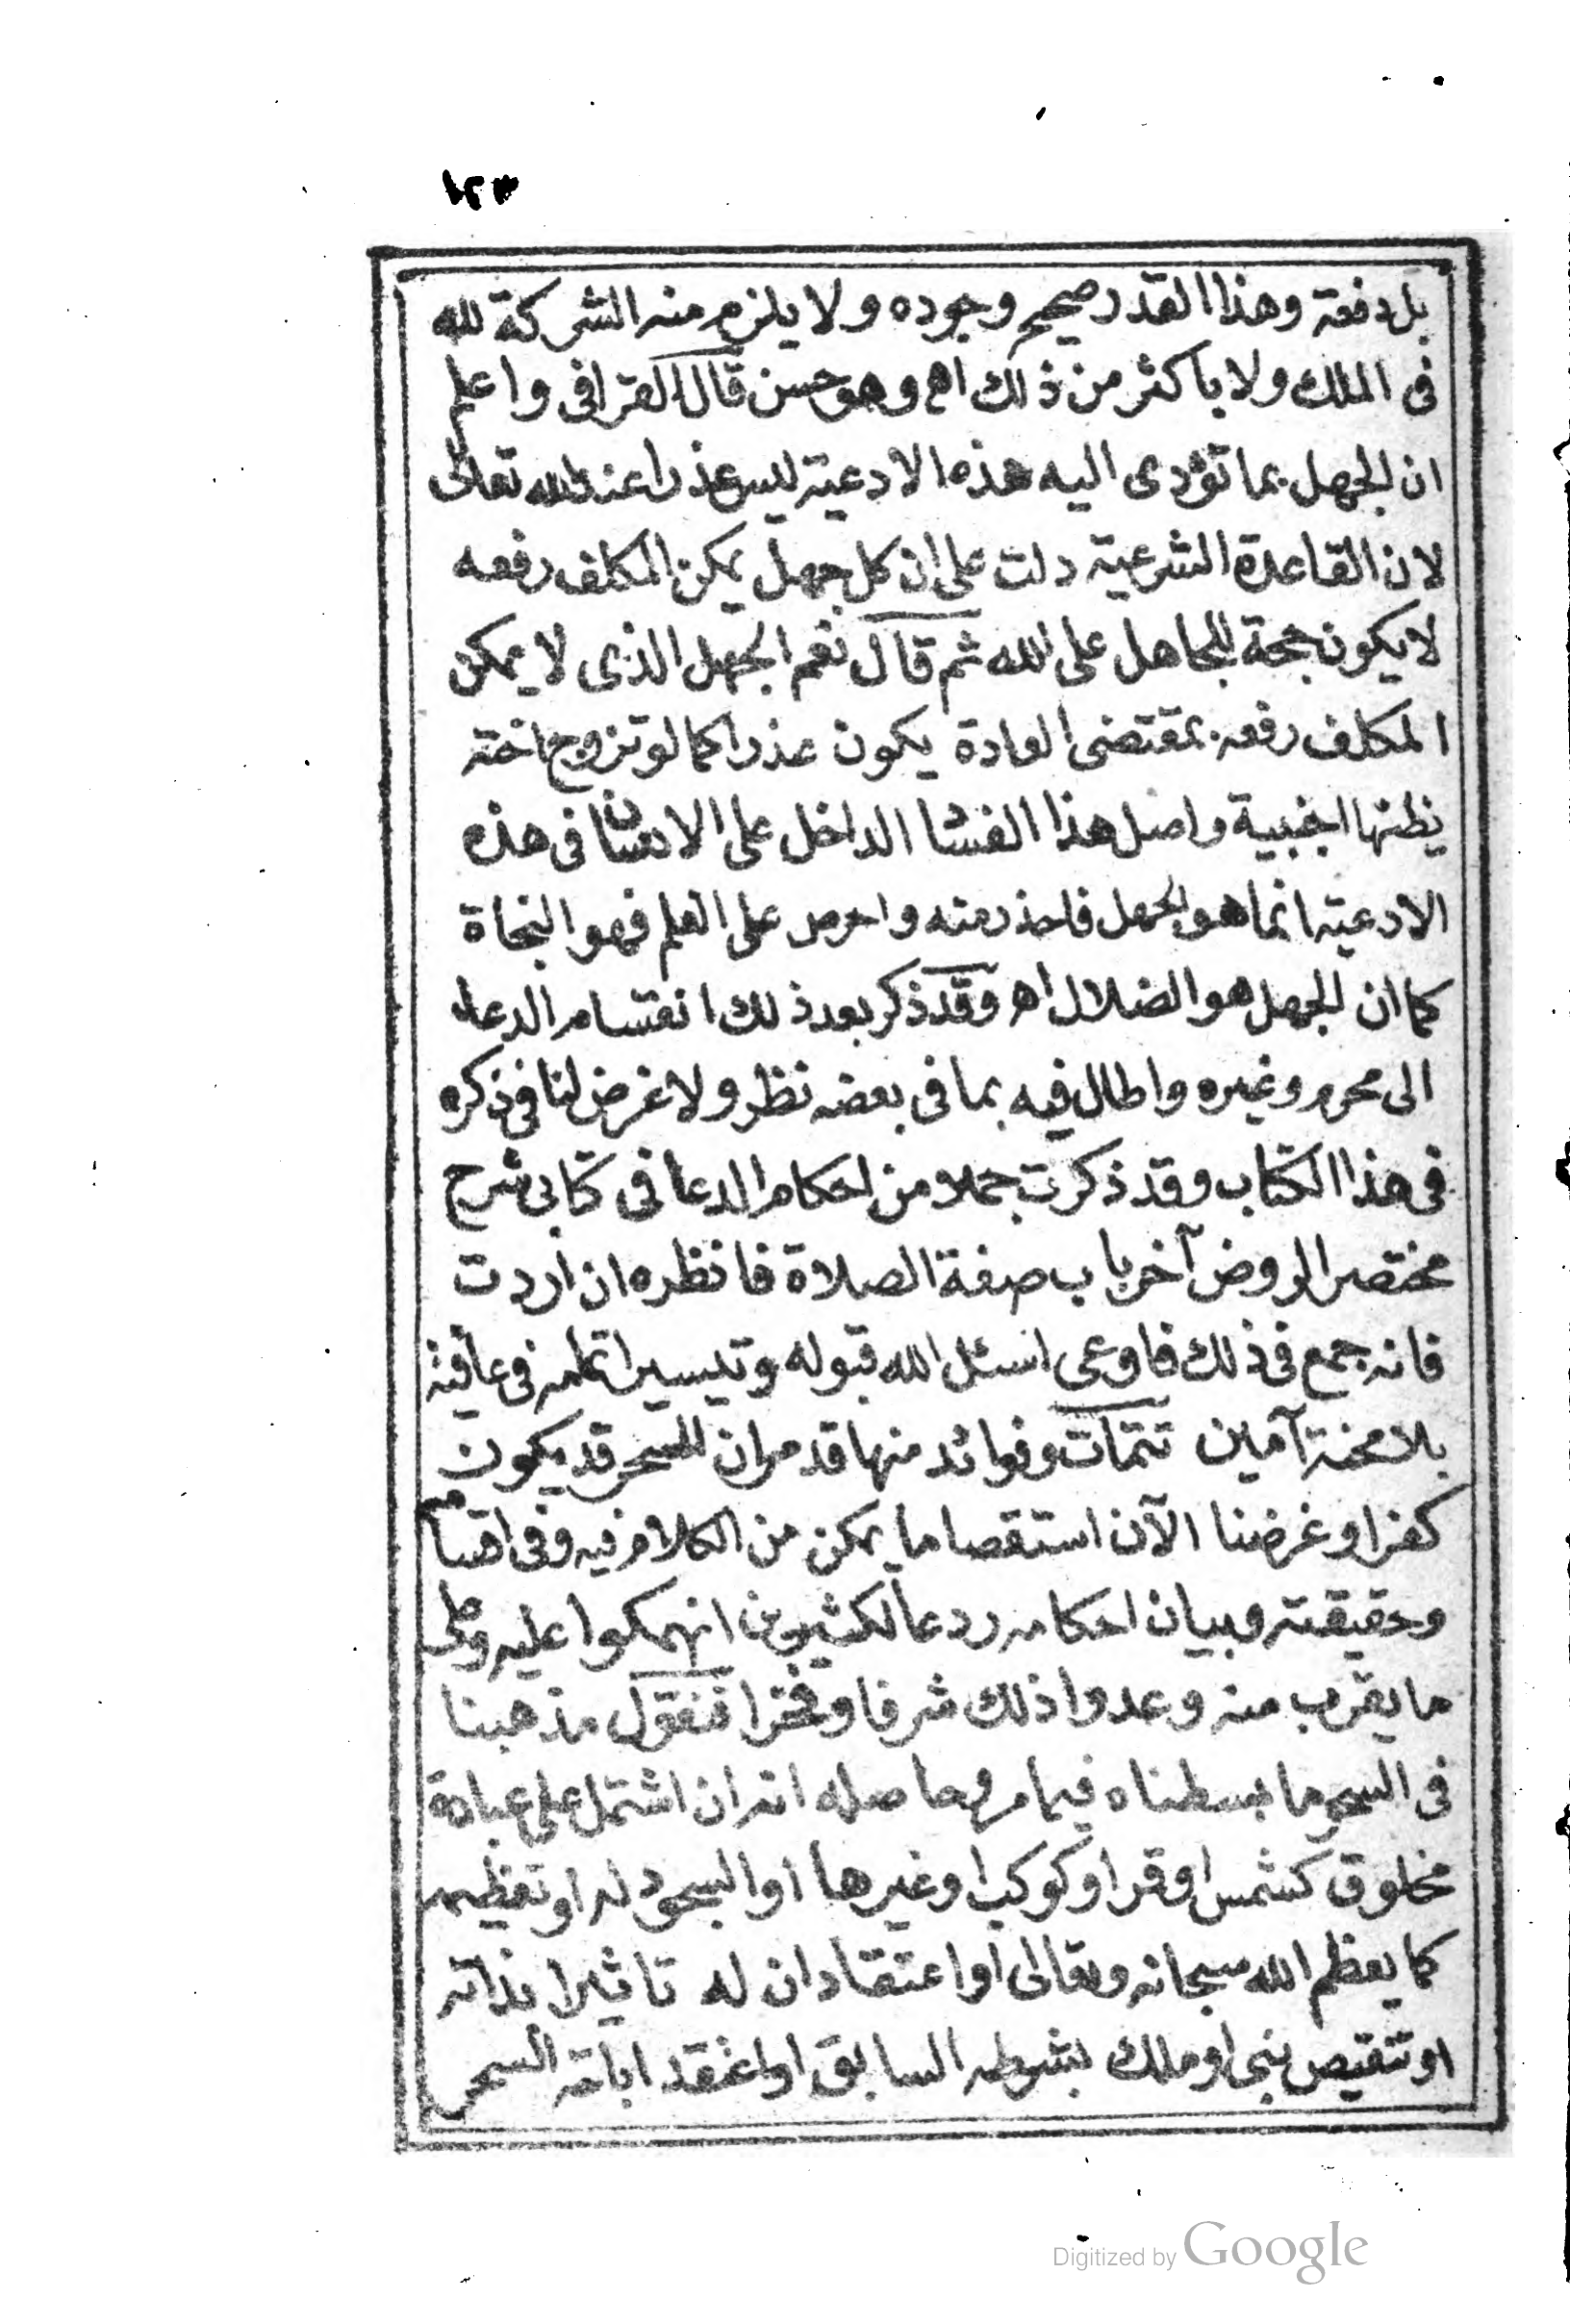 ١٢٣
بل دفعة وهذا القدر صحيح وجوده ولا يلزم منه الشركة لله
فى الملك ولا باكثر من ذلك اه وهو حسن قال القرافى واعلم
ان الجهل بما تؤدى اليه هذه الادعية ليس عذرا عند الله تعالى
لان القاعدة الشرعية دلت على ان كل جهل يمكن المكلف رفعه
لا يكون حجة للجاهل على الله ثم قال نعم الجهل الذى لا يمكن
المكلف رفعه بمقتضى العادة يكون عذرا كما لو تزوج اخته
يظنها اجنبية واصل هذا الفساد الداخل على الانسان فى هذه
الادعية انما هو الجهل فاحذر منه واحرص على العلم فهو النجاة
كما ان الجهل هو الضلال اه وقد ذكر بعد ذلك انقسام الدعاء
الى محرم وغيره واطال فيه بما فى بعضه نظر ولا غرض لنا فى ذكره
فى هذا الكتاب وقد ذكرت جملا من احكام الدعا فى كتابى شرح
مختصر الروض آخر باب صفة الصلاة فانظره ان اردت
فانه جمع فى ذلك فاوعى اسئل الله قبوله وتيسير اتمامه فى عافية
بلا محنة آمين تتمات وفوائد منها قد مر ان السحر قد يكون
كفرا وغرضنا الآن استقصا ما يمكن من الكلام فيه وفى اقسامه
وحقيقته وبيان احكامه ردعا لكثيرين انهمكوا عليه وعلى
ما يقرب منه وعدوا ذلك شرفا وفخرا فنقول مذهبنا
فى السحر ما بسطناه فيما مر وحاصله انه ان اشتمل على عبادة
مخلوق كشمس او قمر او كوكب او غيرها او السجود له او تعظيمه
كما يعظم الله سبحانه وتعالى او اعتقاد ان له تاثيرا بذاته
او تنقيص نبى او ملك بشرطه السابق او اعتقد اباحة السحر
Digitized by Google